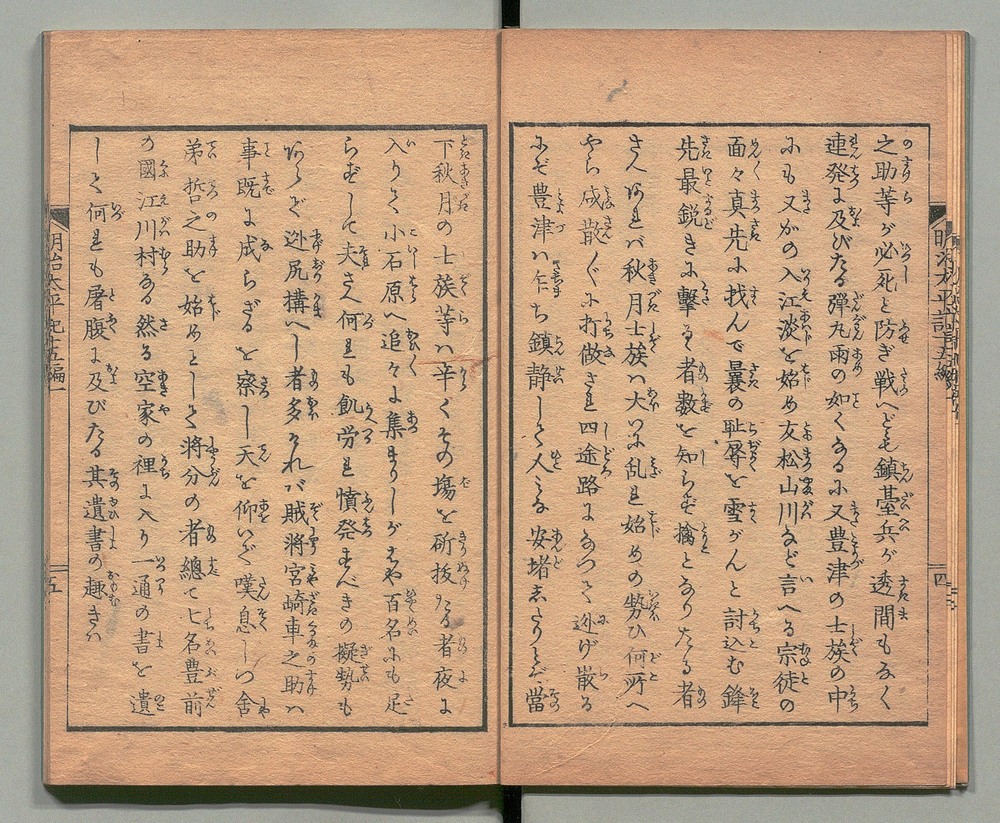 之助等が必死と防ぎ戦へども鎮臺兵が透間もなく
連発に及びたる弾丸雨の如くなるに又豊津の士族の中
にも又かの入江淡を始め友松山川など言へる宗徒の
面々真先に找んで曩の耻辱を雪がんと討込む鋒
先最鋭きに撃るゝ者数を知らず擒となりたる者
さへあれバ秋月士族ハ大いに乱れ始めの勢ひ何所へ
やら成散〴〵に打做され四途路になつて迯げ散る
にぞ豊津ハ乍ち鎮静して人みな安堵志たりとぞ當
下秋月の士族等ハ辛くその塲を斫抜たる者夜に
入りて小石原へ追々に集まりしがはや百名にも足
らずして夫さへ何れも飢労れ憤発すべきの擬勢も
あらで迯尻構へし者多かれバ賊將宮崎車之助ハ
事既に成らざるを察し天を仰いで嘆息しつ舎
弟哲之助を始めとして将分の者總て七名豊前
の國江川村なる然る空家の裡に入り一通の書を遺
して何れも屠腹に及びたる其遺書の趣きハ
明治太平記十五編一
五
四